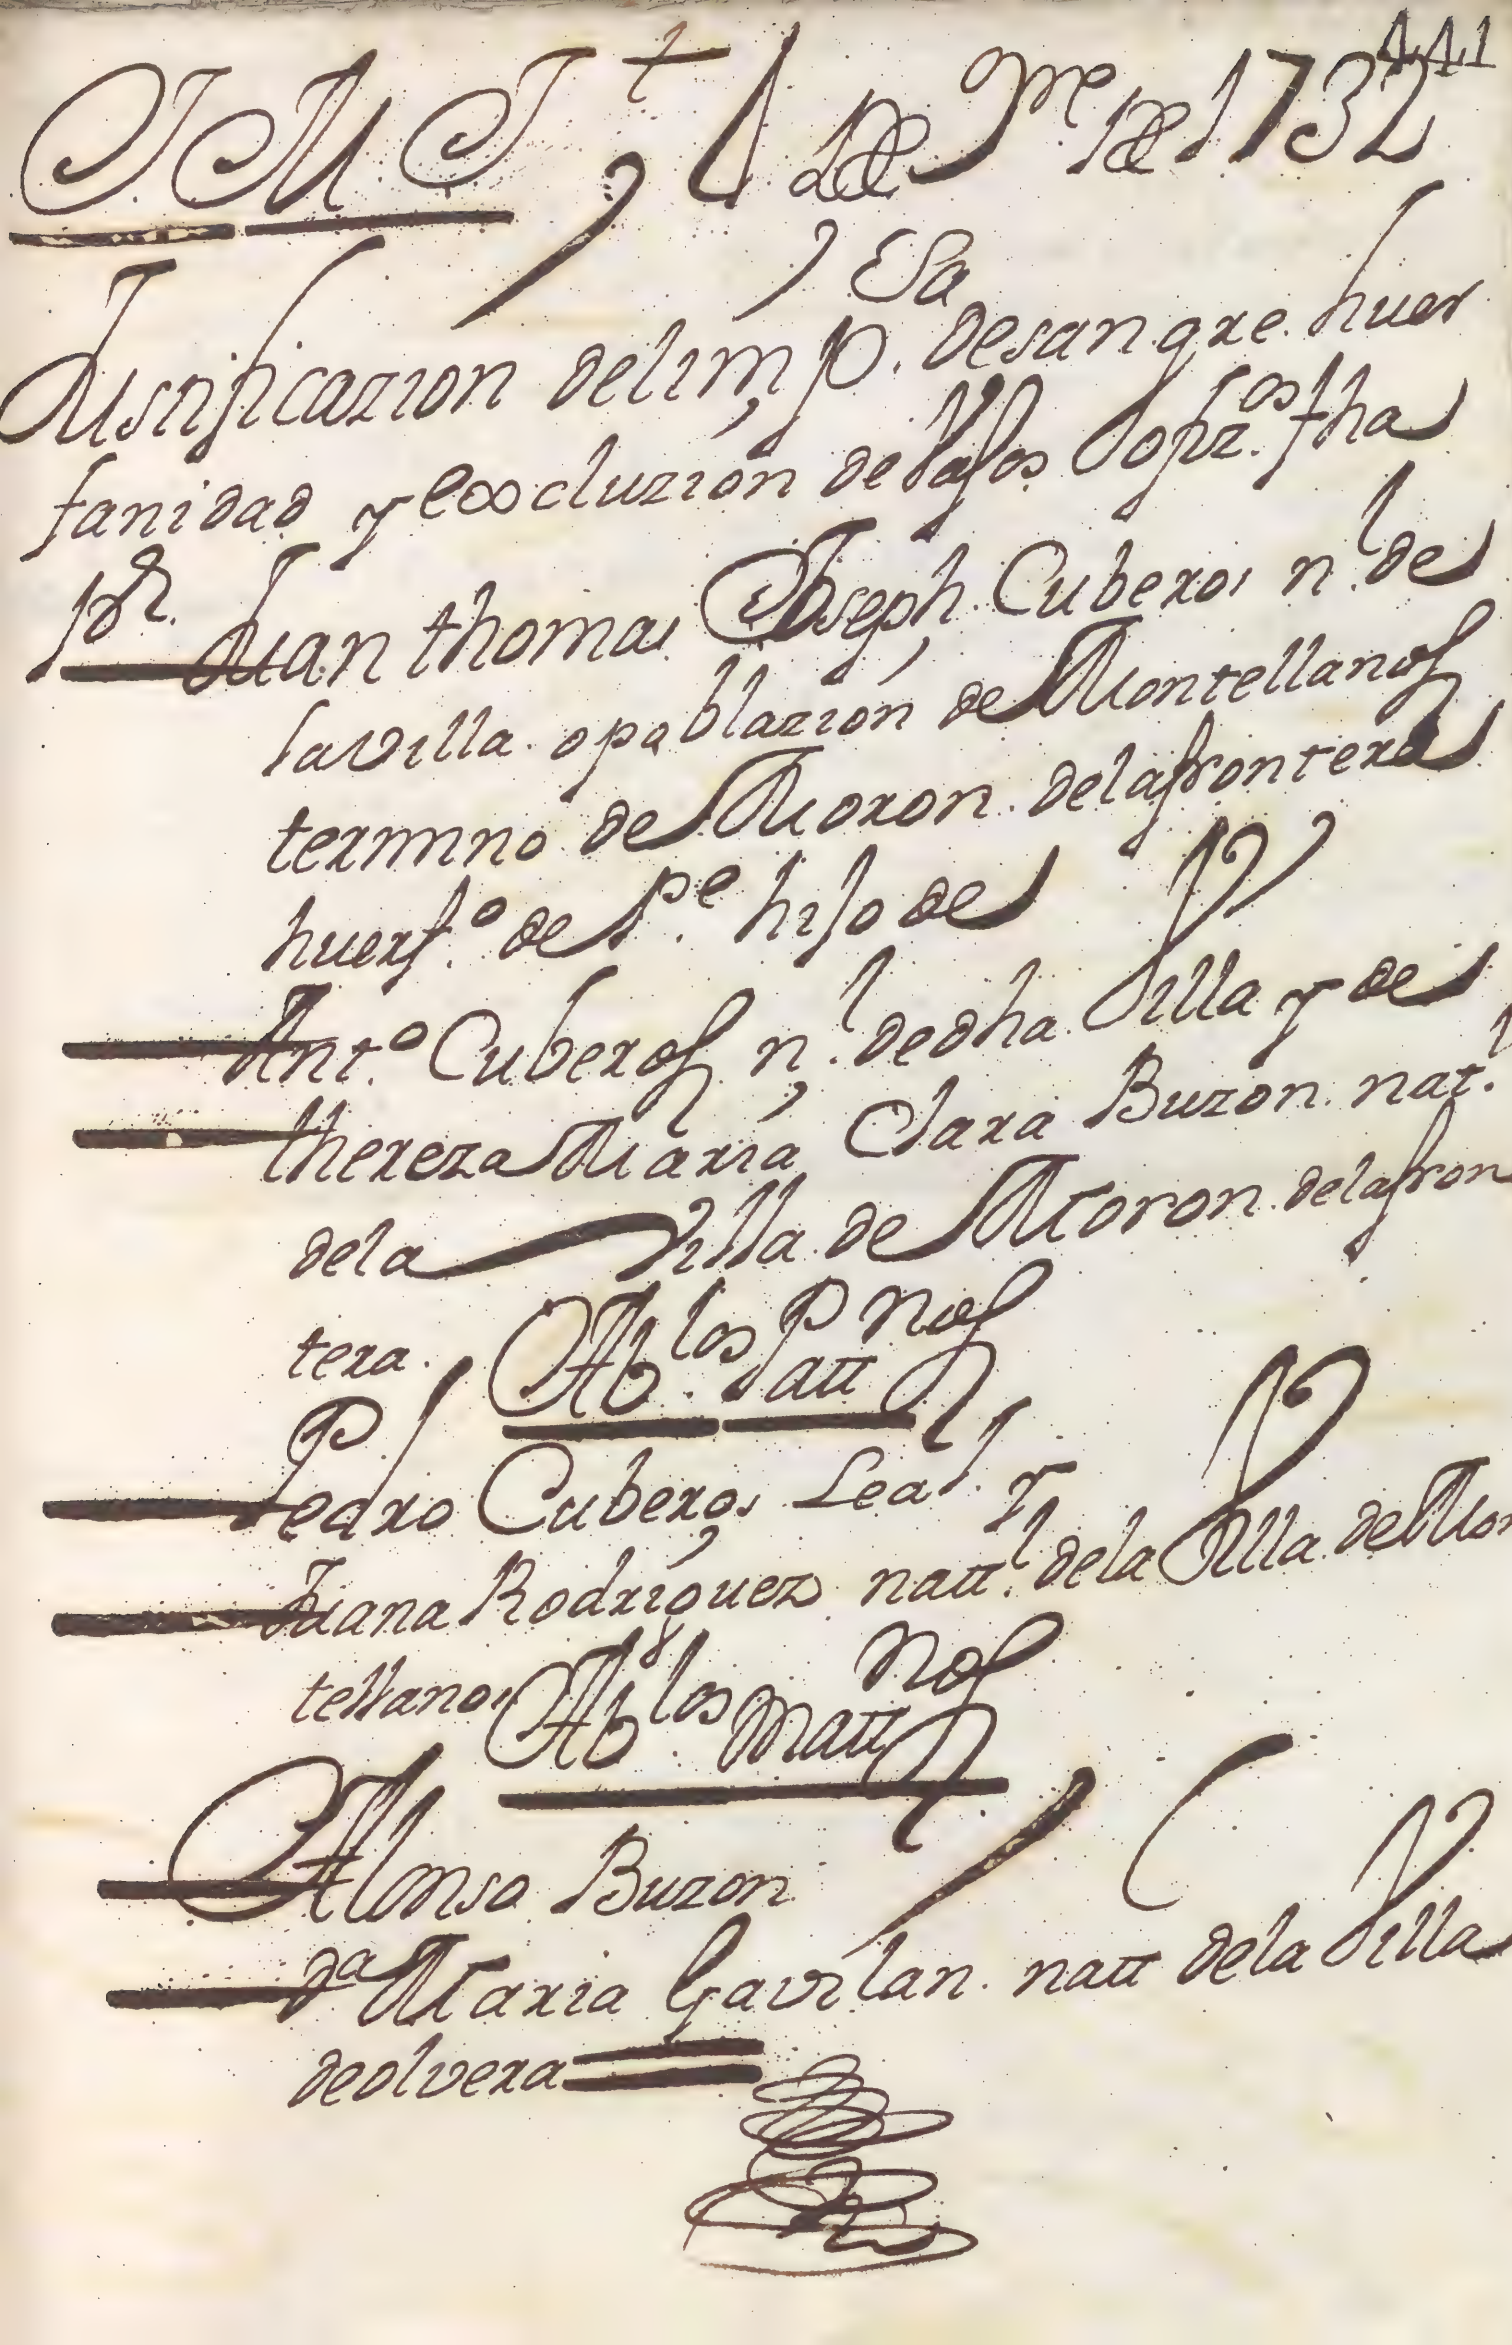 441
J. M. J. + 1 de 9re de 1732
Justificazion de limpza. de sangre huer
fanidad y excluzion de vasos sopzosos fha
por
Juan thomas Joseph Cuberos nl. de
la villa o poblazion de Montellanos
termino de Moron de la frontera
huerfo. de Pe. hijo de
Anto. Cuberos nl. de dha Villa y de
thereza Maria Clara Buzon natl.
de la Villa de Moron de la fron
tera. Ablos Pattnos
Pedro Cuberos Leal y
Juana Rodriguez nattl. de la Villa de Mon
tellanos Ablos Mattnos
Alonso Buzon
Da Maria Gavilan natt de la Villa
de olvera